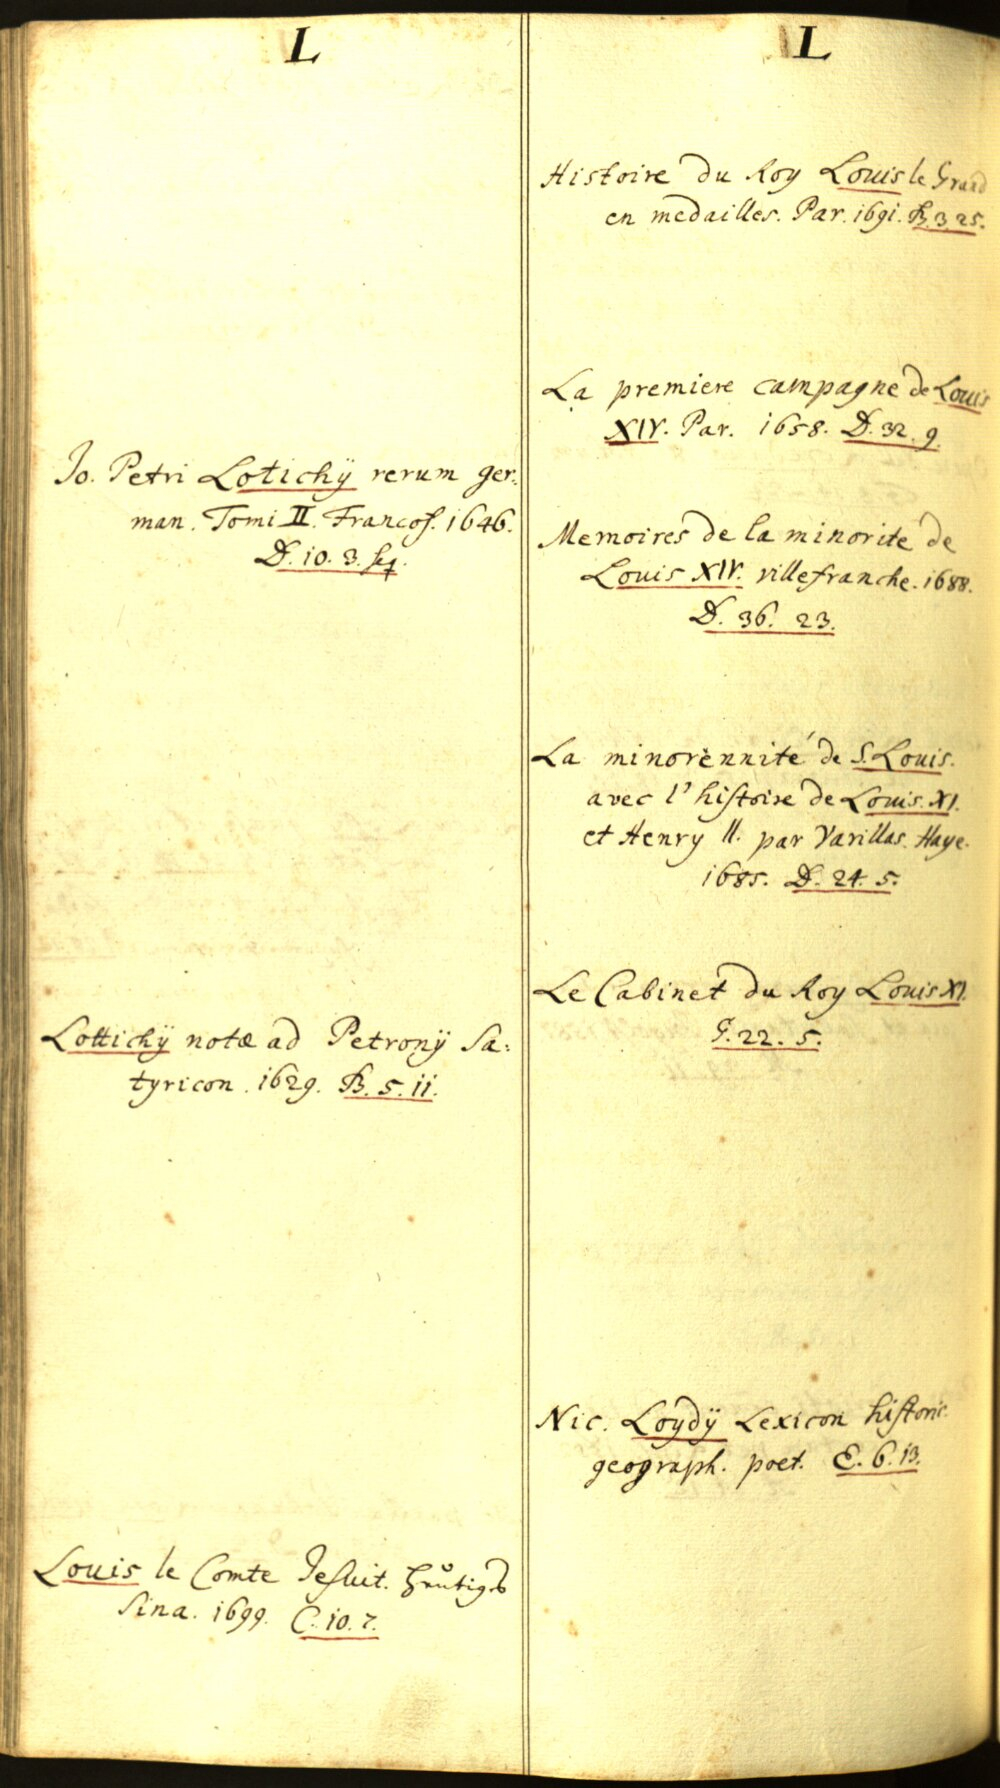 L
Jo. Petri Lotichÿ rerum ger:
man. Tomi II. Francof. 1646.
D. 10. 3. seq.
Lottichÿ notæ ad Petronÿ Sa:
tyricon. 1629. B. 5. 11.
Louis le Comte Jesuit. heutiges
Sina. 1699. C. 10. 7.
L
Histoire du Roy Louis le Grand
en medailles. Par. 1691. B. 3. 25.
La premiere campagne de Louis
XIV. Par. 1658. D. 32. 9.
Memoires de la minorite de
Louis XIV. villefranche. 1688.
D. 36. 23.
La minorennité de S. Louis.
avec l'histoire de Louis. XI.
et Henry II. par Varillas. Haye.
1685. D. 24. 5.
Le Cabinet du Roy Louis XI.
G. 22. 5.
Nic. Loydÿ Lexicon historic.
geograph. poet. E. 6. 13.